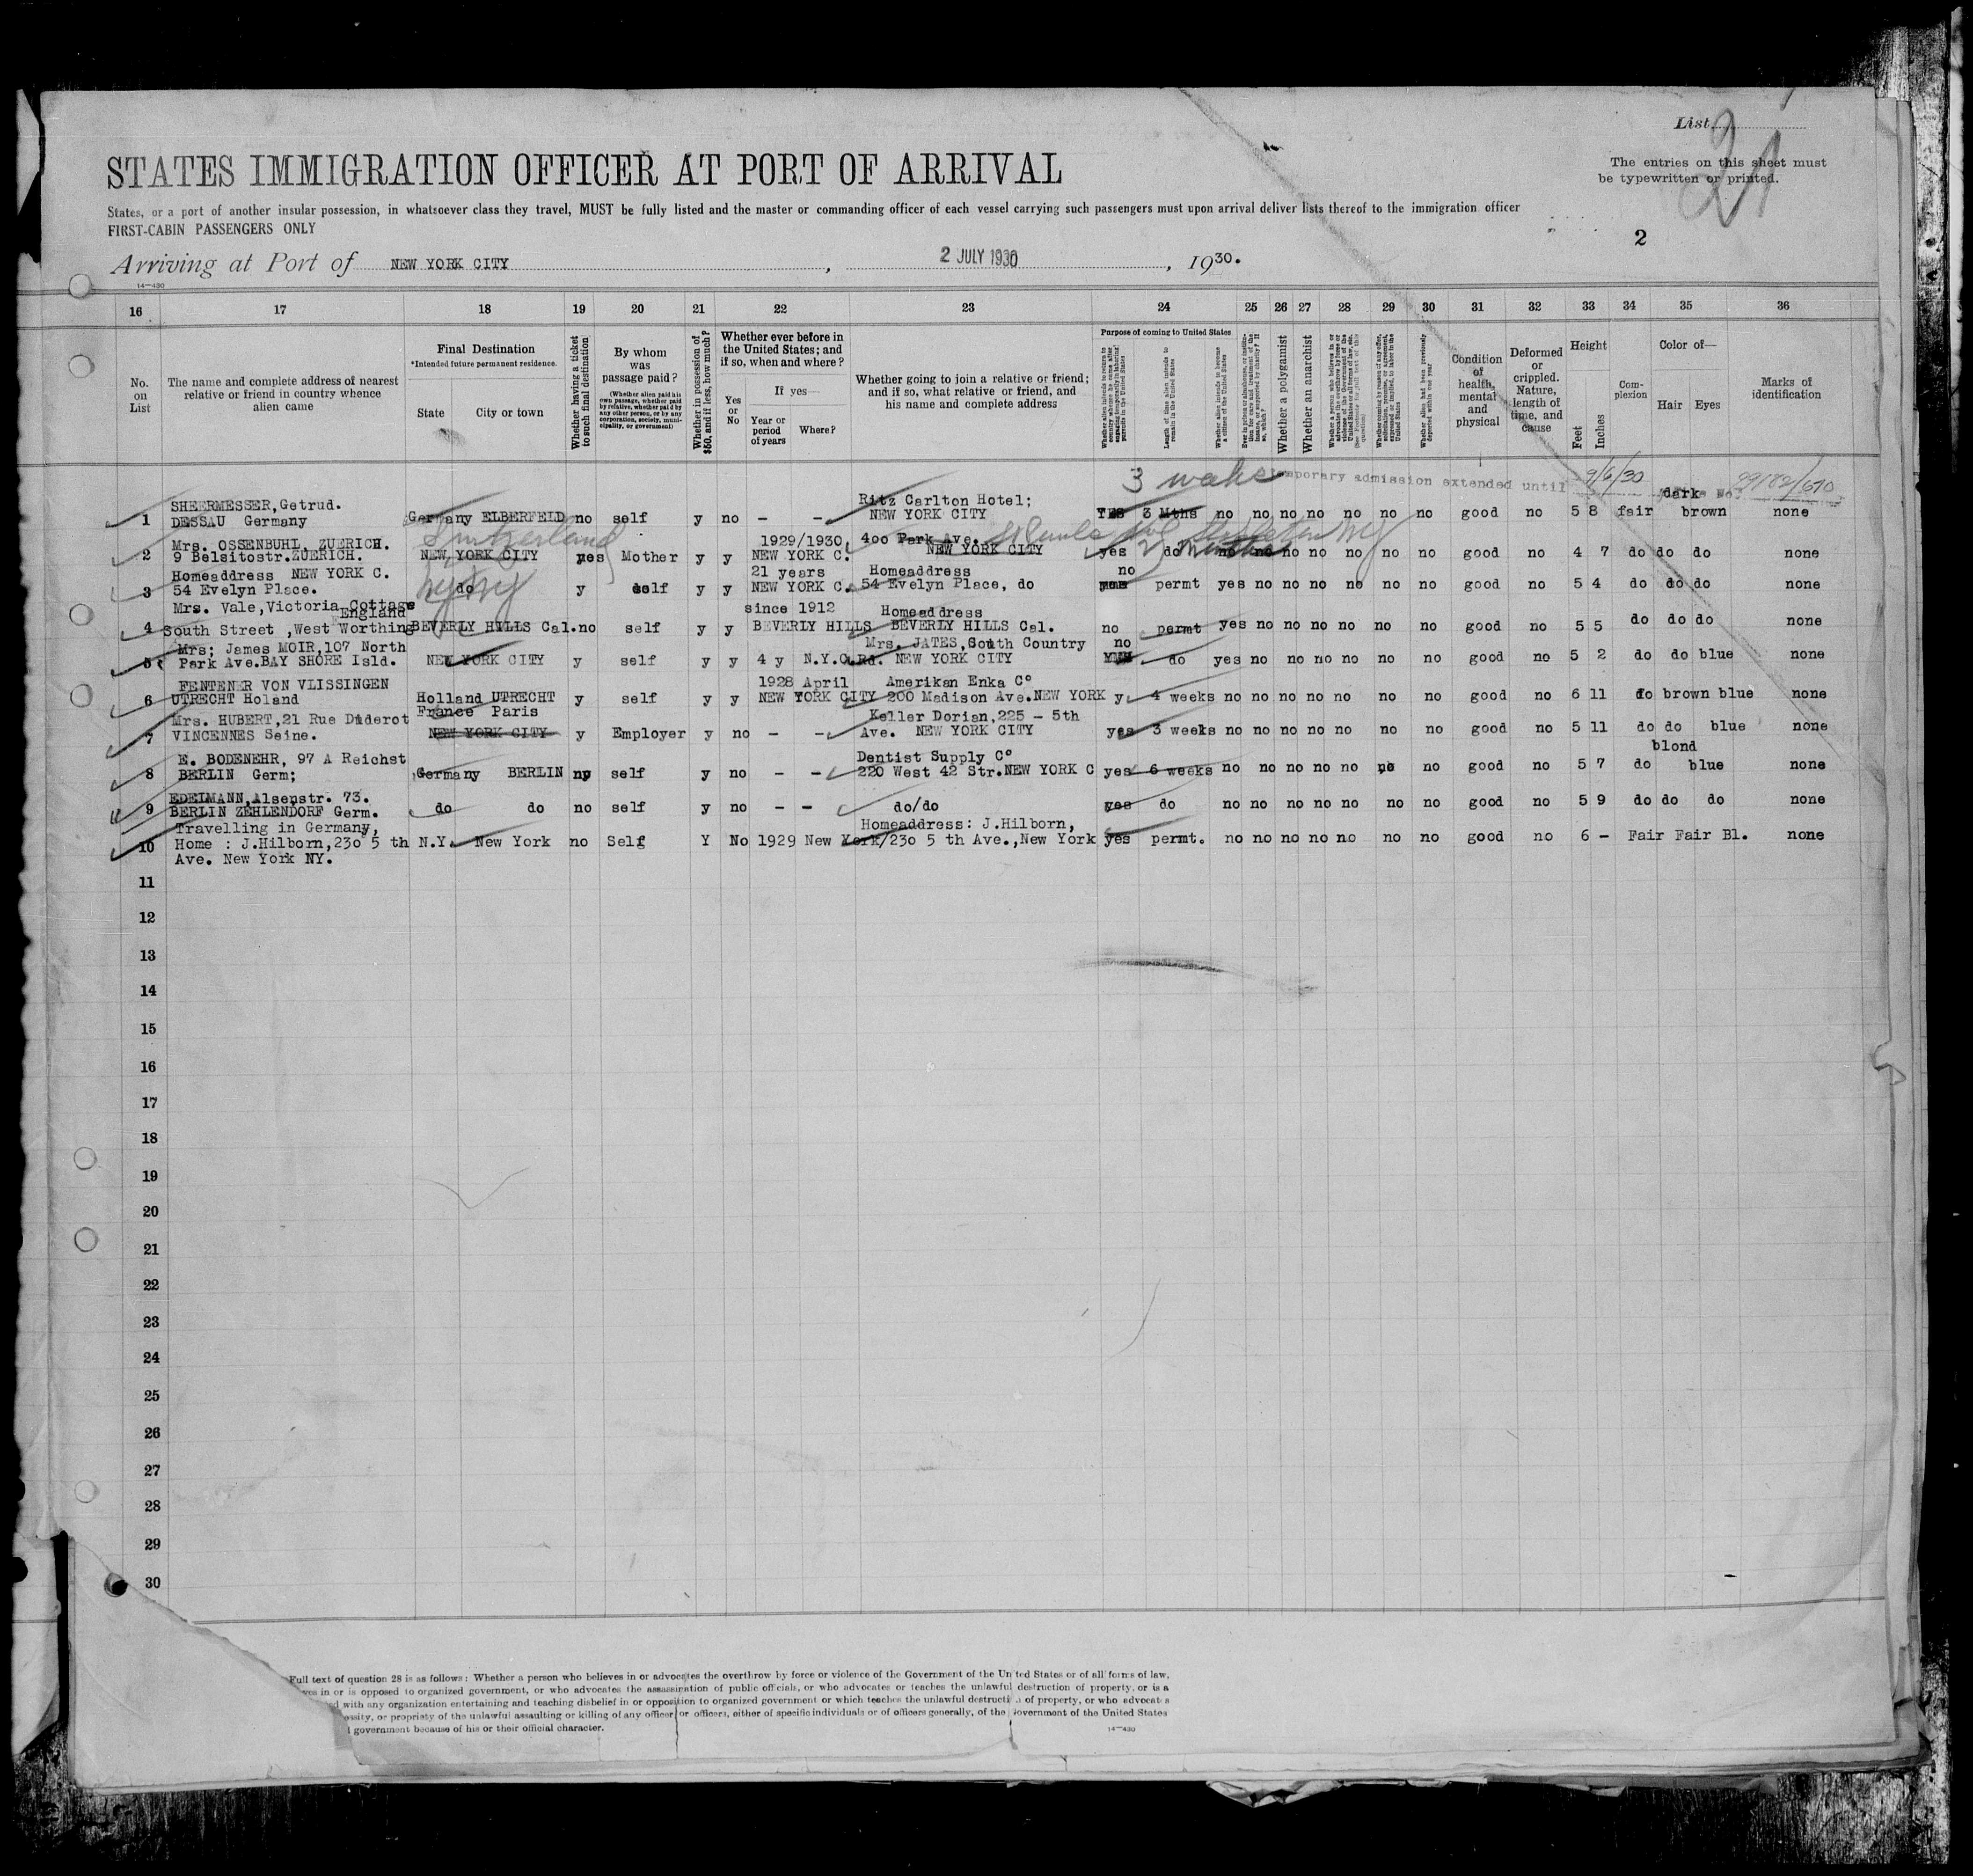 List
21
The entries on this sheet must
be typewritten or printed.
STATES IMMIGRATION OFFICER AT PORT OF ARRIVAL
States, or a port of another insular possession, in whatsoever class they travel, MUST be fully listed and the master or commanding officer of each vessel carrying such passengers must upon arrival deliver lists thereof to the immigration officer
FIRST-CABIN PASSENGERS ONLY
2
Arriving at Port of NEW YORK CITY, 2 JULY 1930, 1930.
14—430
16 17 18 19 20 21 22 23 24 25 26 27 28 29 30 31 32 33 34 35 36
No. on List
The name and complete address of nearest relative or friend in country whence alien came
Final Destination
*Intended future permanent residence.
State City or town
Whether having a ticket to such final destination
By whom was passage paid?
(Whether alien paid his own passage, whether paid by relative, whether paid by any other person, or by any corporation, society, municipality, or government)
Whether in possession of $50, and if less, how much?
Whether ever before in the United States; and if so, when and where?
Yes or No
If yes—
Year or period of years
Where?
Whether going to join a relative or friend; and if so, what relative or friend, and his name and complete address
Purpose of coming to United States
Length of time alien intends to remain in the United States
Whether alien intends to become a citizen of the United States
Whether a polygamist
Whether an anarchist
Whether alien had been previously deported within one year
Condition of health, mental and physical
Deformed or crippled. Nature, length of time, and cause
Height
Feet Inches
Complexion
Color of—
Hair Eyes
Marks of identification
3 weeks temporary admission extended until 9/6/30 No. 99182/670
SHEERMESSER,Getrud. Ritz Carlton Hotel; dark
1 DESSAU Germany Germany ELBERFELD no self y no - - NEW YORK CITY YES 3 Mths no no no no no no no good no 5 8 fair brown none
Switzerland
Mrs. OSSENBUHL ZUERICH. 1929/1930 400 Park Ave.
2 9 Belsitostr.ZUERICH. NEW YORK CITY yes Mother y y NEW YORK C. NEW YORK CITY yes do no no no no no no no good no 4 7 do do do none
Homeaddress NEW YORK C. 21 years Homeaddress no
3 54 Evelyn Place. do y self y y NEW YORK C. 54 Evelyn Place, do permt yes no no no no no no good no 5 4 do do do none
Mrs. Vale,Victoria Cottage England since 1912 Homeaddress
4 South Street ,West Worthing BEVERLY HILLS Cal. no self y y BEVERLY HILLS BEVERLY HILLS Cal. no permt yes no no no no no no good no 5 5 do do do none
Mrs; James MOIR,107 North Mrs. JATES,South Country no
5 Park Ave.BAY SHORE Isld. NEW YORK CITY y self y y 4 y N.Y.C. Rd. NEW YORK CITY do yes no no no no no no good no 5 2 do do blue none
FENTENER VON VLISSINGEN 1928 April Amerikan Enka Cº
6 UTRECHT Holand Holland UTRECHT y self y y NEW YORK CITY 200 Madison Ave.NEW YORK y 4 weeks no no no no no no no good no 6 11 do brown blue none
Mrs. HUBERT,21 Rue Diderot France Paris Keller Dorian,225 - 5th
7 VINCENNES Seine. NEW YORK CITY y Employer y no - - Ave. NEW YORK CITY yes 3 weeks no no no no no no no good no 5 11 do do blue none
E. BODENEHR, 97 A Reichst Dentist Supply Cº blond
8 BERLIN Germ; Germany BERLIN no self y no - - 220 West 42 Str.NEW YORK C yes 6 weeks no no no no no no no good no 5 7 do blue none
EDELMANN,Alsenstr. 73.
9 BERLIN ZEHLENDORF Germ. do do no self y no - - do/do yes do no no no no no no no good no 5 9 do do do none
Travelling in Germany, Homeaddress: J.Hilborn,
10 Home : J.Hilborn,23o 5 th N.Y. New York no Self Y No 1929 New York/23o 5 th Ave.,New York yes permt. no no no no no no no good no 6 - Fair Fair Bl. none
Ave. New York NY.
11
12
13
14
15
16
17
18
19
20
21
22
23
24
25
26
27
28
29
30
Full text of question 28 is as follows: Whether a person who believes in or advocates the overthrow by force or violence of the Government of the United States or of all forms of law,
in or is opposed to organized government, or who advocates the assassination of public officials, or who advocates or teaches the unlawful destruction of property, or is a
with any organization entertaining and teaching disbelief in or opposition to organized government or which teaches the unlawful destruction of property, or who advocates
or propriety of the unlawful assaulting or killing of any officer or officers, either of specific individuals or of officers generally, of the Government of the United States
government because of his or their official character.
14—430